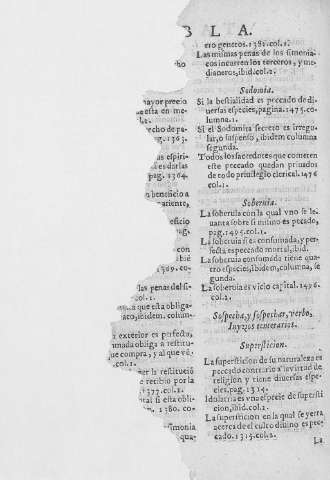 B L A.
ero generos. 1381. col. 1.
Las mismas penas de los simonia-
cos incurren los terceros, y me-
dianeros, ibid. col. 2.
Sodomia.
Si la bestialidad es peccado de di-
uersas especies, pagina. 1475. co-
lumna. 1.
Si el Sodomita secreto es irregu-
lar, o suspenso, ibidem columna
segunda.
Todos los sacerdotes que cometen
este peccado quedan priuados
de todo priuilegio clerical. 1476
col. 1.
Soberuia.
La soberuia con la qual vno se le-
uanta sobre si mismo es pecado,
pag. 1495. col. 1.
La soberuia si es consumada, y per-
fecta es peccado mortal, ibid.
La soberuia consumada tiene qua-
tro especies, ibidem, columna, se
gunda.
La soberuia es vicio capital. 1496.
col. 2.
Sospecha, y sospechar, verbo,
Iuyzios temerarios.
Supersticion.
La supersticion de su naturaleza es
peccado contrario a la virtud de
religion y tiene diuersas espe-
cies, pag. 1314.
Idolatria es vna especie de supersti
cion, ibid. col. 2.
La supersticion en la qual se yerra
acerca del culto diuino es pec-
cado. 1315. col. 2.
La
cho
mayor precio
ue esta en me-
le.
echo de pa-
g. 1363.
as espiri-
es darlas
pag. 1364.
n beneficio a
ariente,
eficio
pag.
ibi
69. co-
las penas del si-
col. 1.
a que esta obliga-
aco, ibidem. colum-
a exterior es perfecta,
nmada obliga a restitu-
ue compra, y al que vé-
col. 1.
er la restitució
e recibio por la
1373. col. 1.
tal si esta obli-
n. 1380. co-
simonia
qua-